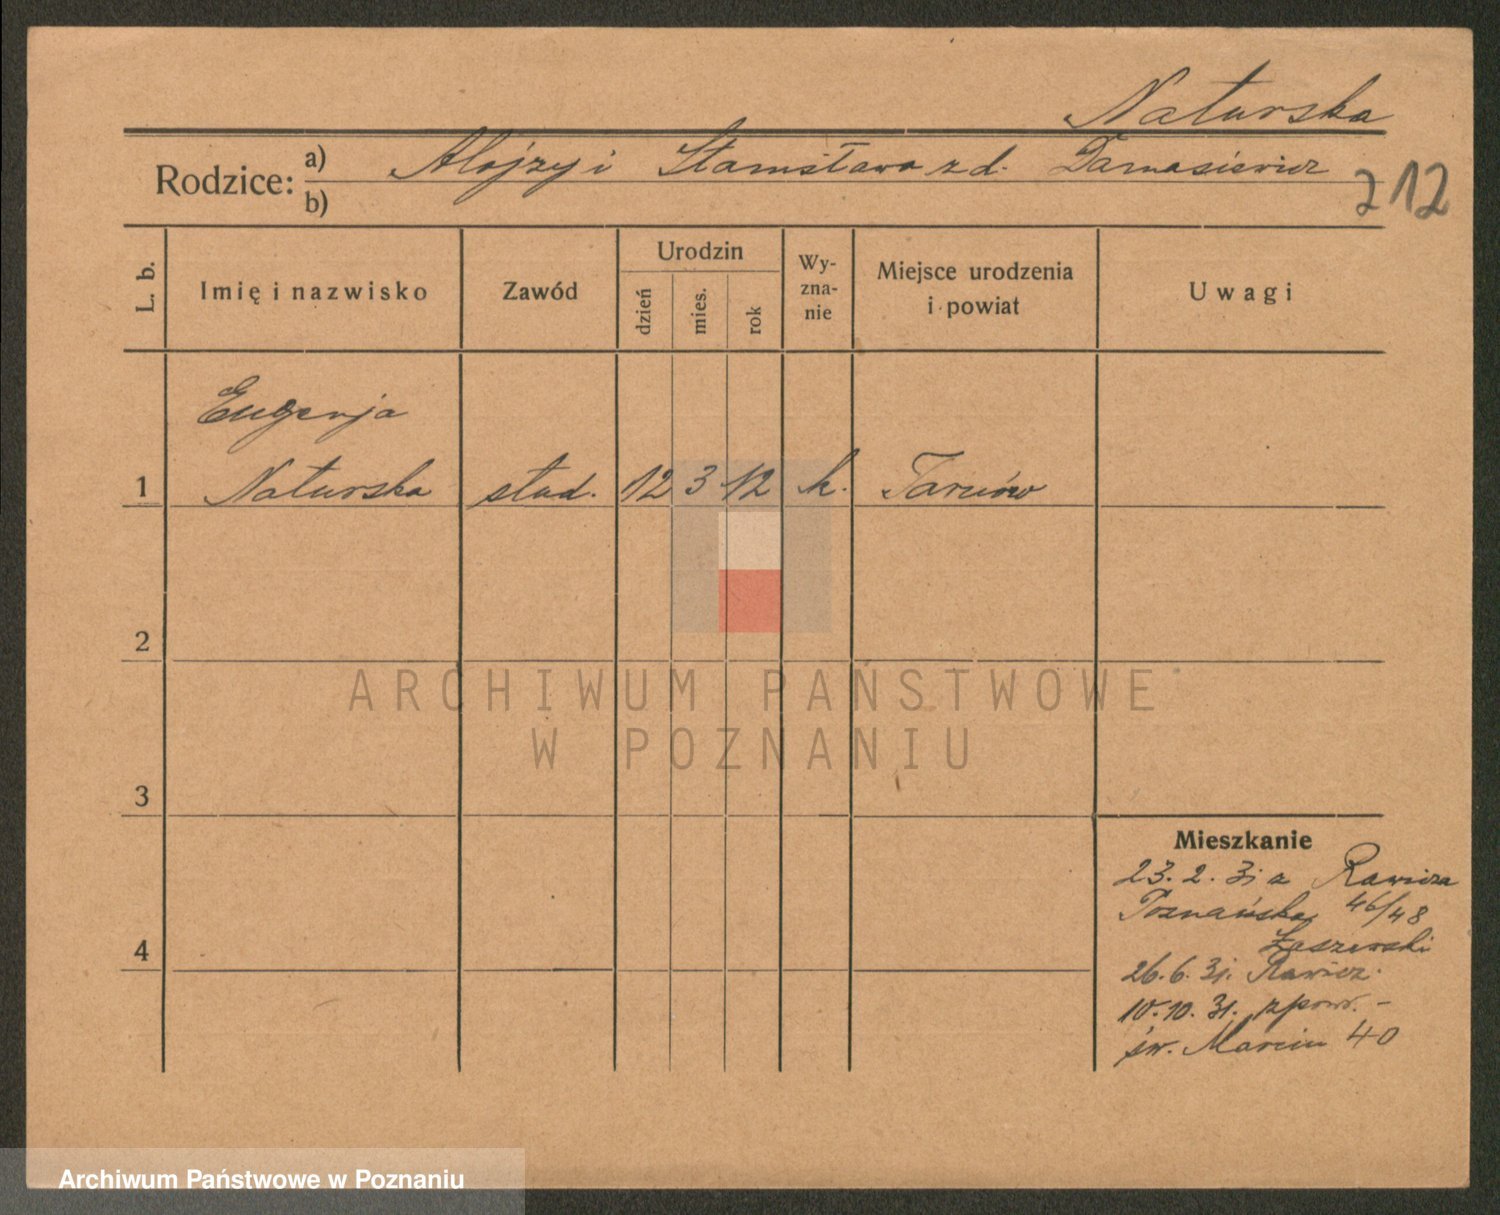 Naturska
Rodzice: a) Alojzy i Stanisława z d. Damasiewicz
b)
212
L. b.
Imię i nazwisko
Zawód
Urodzin
dzień
mies.
rok
Wy-
zna-
nie
Miejsce urodzenia
i powiat
Uwagi
Eugenja
1 Naturska stud. 12 3 12 k. Tarnów
2
3
4
Mieszkanie
23. 2. 31 z Rawicza
Poznańska 46/48
Łaszewski
26. 6. 31. Rawicz.
10. 10. 31. zpow. -
św. Marcin 40
ARCHIWUM PAŃSTWOWE
W POZNANIU
Archiwum Państwowe w Poznaniu